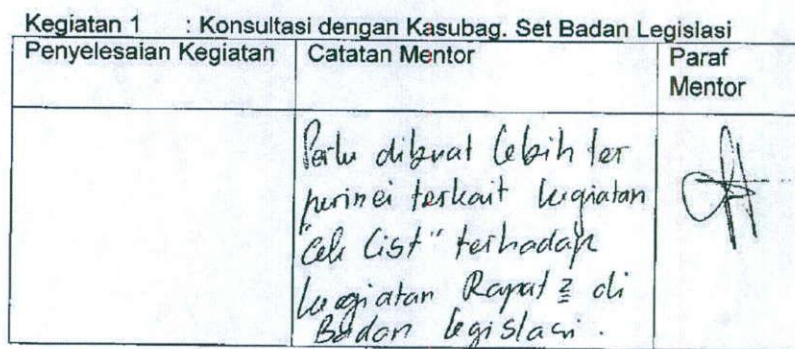 Kegiatan 1 : Konsultasi dengan Kasubag. Set Badan Legislasi
Penyelesaian Kegiatan Catatan Mentor Paraf
Mentor
Perlu dibuat lebih ter
perinci terkait kegiatan
"Cek List" terhadap
kegiatan Rapat2 di
Badan legislasi.